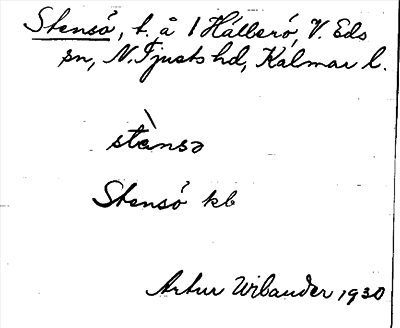 Stensö, t. å 1 Hällerö, V. Eds
sn, N. Tjusts hd, Kalmar l.
stènsə
Stensö kb
Artur Wilander 1930